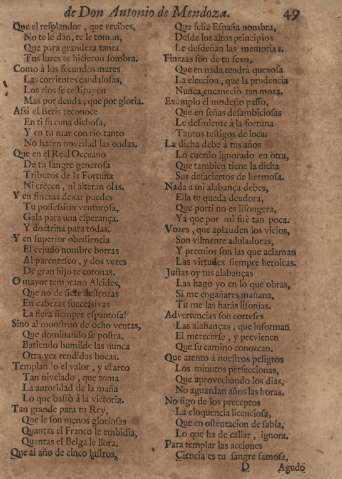 de Don Antonio de Mendoza. 49
Que el resplandor, que recibes,
No te le dàn, te le toman,
Que para grandeza tanta
Tus lares te hizieron sombra.
Como à los fecundos mares
Las corrientes caudalosas,
Los rios se restituyen
Mas por deuda, que por gloria.
Assi el Betis reconoce
En ti su cuna dichosa,
Y en tu mar con rio tanto
No hazen novedad las ondas.
Que en el Real Oceano
De tu sangre generosa
Tributos de la Fortuna
Ni crecen, ni alteran olas.
Y en finezas dexar puedes
Tu possession venturosa,
Gala para una esperança,
Y doctrina para todas.
Y en superior obediencia
El cejudo nombre borras
Al parentesco, y dos vezes
De gran hijo te coronas.
O mayor temprano Alcides,
Que no de siete
En cabezas sucessivas
La fiera siempre espantosa!
Sino al monstruo de ocho ventas,
Que dominando se postra,
Batiendo humilde las nunca
Otra vez rendidas bocas.
Templan lo el valor, y el arco
Tan nivelado, que toma
La autoridad de la maña
Lo que bastò à la victoria.
Tan grande para tu Rey,
Que le son menos gloriosas
Quantas el Franco le embidia,
Quantas el Belga le llora.
Que al año de cinco lustros,
Que feliz España nombra,
Desde los altos principios
Le desdeñan las memorias.
Finezas son de tu sexo,
Que en nada tendrà quexosa
La eleccion, que la prudencia
Nunca encaneciò tan moza.
Exemplo el modesto passo,
Que en señas desambiciosas
Le desmiente à la fortuna
Tantos testigos de loca.
La dicha debe à tus años
Lo cuerdo ignorado en otra,
Que tambien tiene la dicha
Sus desaciertos de hermosa.
Nada à mi alabança debes,
Ella te queda deudora,
Que por ti no es lisongera,
Ya que por mi fuè tan poca.
Vozes, que aplauden los vicios,
Son vilmente aduladoras,
Y premios son las que aclaman
Las virtudes siempre heroicas.
Justas oy tus alabanças
Las hago yo en lo que obras,
Si me engañares mañana,
Tu me las haràs lisonjas.
Advertencias son corteses
Las alabanças, que informan
El merecerse, y previenen
Que su camino conozcan.
Que atento à nuestros peligros
Los minutos perfecciones,
Que aprovechando los dias,
No aguardan años las horas.
No sigo de los preceptos
La eloquencia licenciosa,
Que en ostentacion de sabia,
Lo que ha de callar, ignora.
Para templar las acciones
Ciencia es tu sangre famosa,
D Agudo